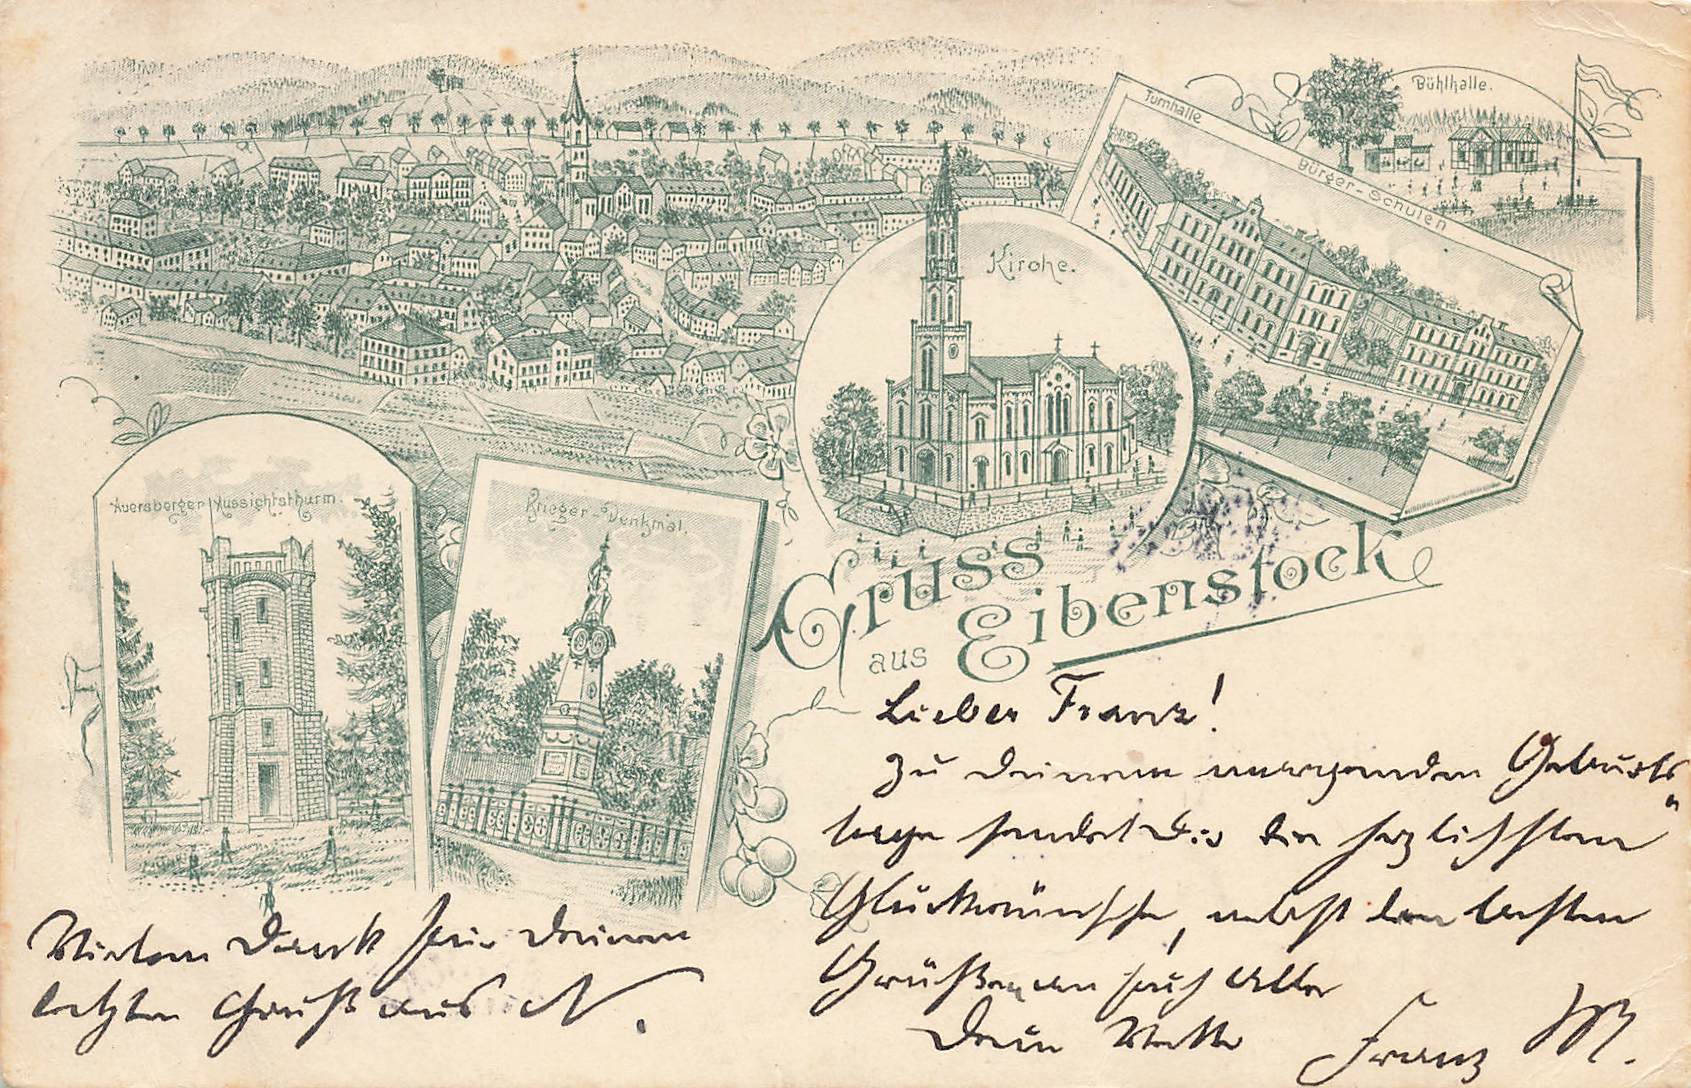 Bühlhalle.
Turnhalle
Bürger-Schulen
Kirche.
Auersberger Aussichtsthurm.
Krieger-Denkmal.
Gruss
aus Eibenstock
Lieber Franz!
Zu Deinem morgenden Geburts
tage sendet Dir die herzlichsten
Glückwünsche, nebst den besten
Grüßen an Euch Alle
Dein Vetter Franz M.
Vielen Dank für Deinen
letzten Gruß aus N.